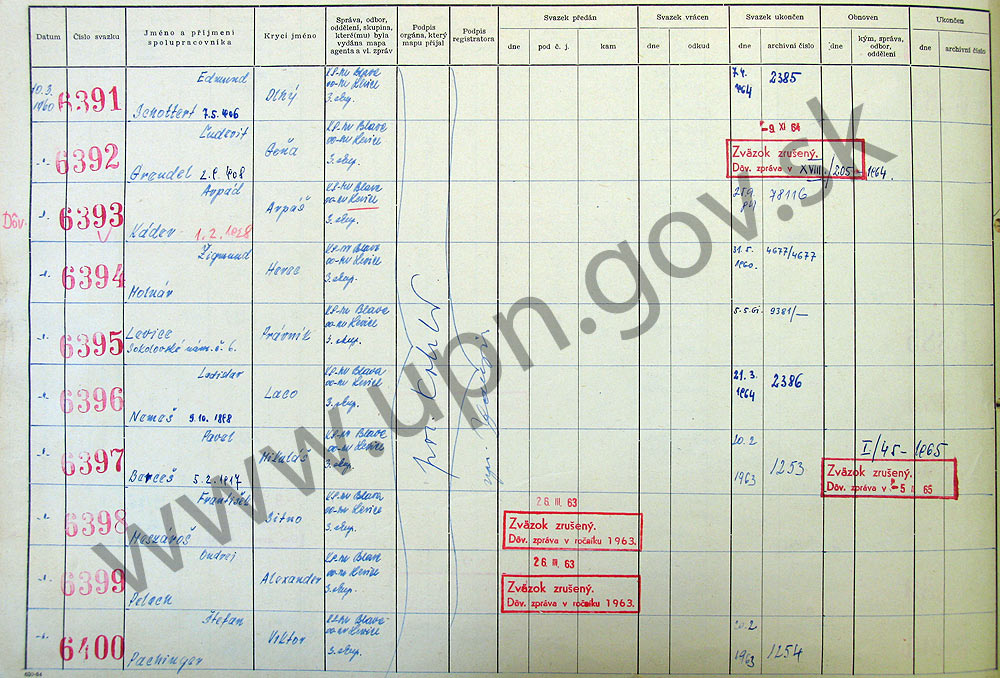 Datum
Číslo svazku
Jméno a příjmení
spolupracovníka
Krycí jméno
Správa, odbor,
oddělení, skupina,
které(mu) byla
vydána mapa
agenta a vl. zpráv
Podpis
orgána, který
mapu přijal
Podpis
registratora
Svazek předán
dne
pod č. j.
kam
Svazek vrácen
dne
odkud
Svazek ukončen
dne
archivní číslo
Obnoven
dne
kým, správa,
odbor,
oddělení
Ukončen
dne
archivní číslo
10.3.
1960
6391
Edmund
Schottert 7.5.1906
Dlhý
KS-MV Blava
oo-MV Levice
3. skup.
7.4.
1964
2385
6392
Ľudevit
Grandel
KS-MV Blava
oo-MV Levice
3. skup.
-9. XI 64
Zväzok zrušený.
Dôv. zpráva v XVIII/205-1964.
Dôv.
6393
Arpád
Káder 1.2.1928
Arpáš
KS-MV Blava
oo-MV Levice
3. skup.
78116
6394
Žigmund
Molnár
Herec
KS-MV Blava
oo-MV Levice
3. skup.
31.5.
1960.
4677/4677
6395
Levice
Sokolovské nám. č. 6.
Právnik
KS-MV Blava
oo-MV Levice
3. skup.
5.5.61.
9381/-
6396
Ladislav
Nemeš 9.10.1898
Laco
KS-MV Blava
oo-MV Levice
3. skup.
21.3.
1964
2386
6397
Pavel
5.2.1917
Mikuláš
KS-MV Blava
oo-MV Levice
3. skup.
20.2
1963
1253
I/45-1965
Zväzok zrušený.
Dôv. zpráva v -5 II 65
6398
František
Meszároš
Sitno
KS-MV Blava
oo-MV Levice
3. skup.
26. III. 63
Zväzok zrušený.
Dôv. zpráva v ročníku 1963.
6399
Ondrej
Pelach
Alexander
KS-MV Blava
oo-MV Levice
3. skup.
26. III. 63
Zväzok zrušený.
Dôv. zpráva v ročníku 1963.
6400
Štefan
Pachinger
Viktor
KS-MV Blava
oo-MV Levice
3. skup.
20.2
1963
1254
www.upn.gov.sk